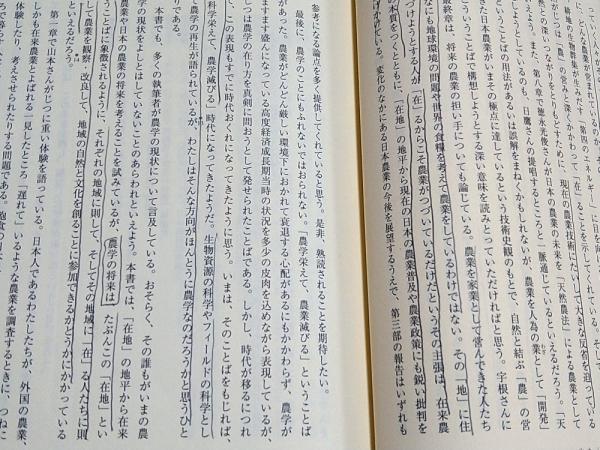 耕地の生物群集が生みだす「第四のエネルギー」に目を向け
に、どんな農業が「農」の営みと深くかかわって「在」ることを示してくれている。そし
然」をとりもどすために、現在の農業技術にたいして大きな反省を迫ってい
えようとしているのも、日鷹さんの提唱するところと一脈通じているといえるだろう。「天
与える。また、第八章で徳永光俊さんが日本農業の未来を「天然農法」による農業として
ということばの用法があるいは誤解をまねくかもしれないが、農業を人為の業として「開発」
きた日本農業がいまその極点に達しているという技術史観のもとで、自然と結ぶ「農」の営
うことばで構想しようとする深い意味を読みとっていただければと思う。宇根さんに
最終章は、将来の農業の担い手についても論じている。農業を家業として営んできた人たち
なにも地球環境の問題や世界の食糧を考えて農業をしているわけではない。その「地」に住
けようとする人が「在」るからこそ農業がつづいているだけだというその主張は、在来農
の本質をつくとともに、「在地」の地平から現在の日本の農業普及や農業政策にも鋭い批判を
げかけている。変化のなかにある日本農業の今後を展望するうえで、第三部の報告はいずれも
参考になる論点を多く提供してくれていると思う。是非、熟読されることを期待したい。
最後に、農学のことにもふれないではおられない。「農学栄えて、農業滅びる」ということば
があった。農業がどんどん厳しい環境下におかれて衰退する心配があるにもかかわらず、農学が
ますます盛んになっている高度経済成長期当時の状況を多少の皮肉を込めながら表現しているが、
じつは農学の在り方を真剣に問おうとして発せられたことばである。しかし、時代が移るにつれ
て、この表現もすでに時代おくれになってきたように思う。いまは、そのことばをもじれば、
「科学栄えて、農学滅びる」時代になってきたようだ。生物資源の科学やフィールドの科学とし
て農学の再生が語られているが、わたしはそんな方向がほんとうに農学なのだろうかと思うひと
りである。
本書でも、多くの執筆者が農学の現状について言及している。おそらく、その誰もがいまの農
学の現状をよしとはしていないことのあらわれといえよう。本書では、「在地」の地平から在来
農業や日本の農業の将来を考えることを試みているが、農学の将来は、たぶんこの「在地」とい
うことばに象徴されるように、それぞれの地域に則して、そしてその地域に「在」る人たちに則
して農業を観察・改良して、地域の自然と文化を創ることに参加できるかどうかにかかっている
といえるだろう。
第一章で山本さんがじつに重い体験を語っている。日本人であるわたしたちが、外国の農業、
しかも在来農業とよばれる一見したところ「遅れて」いるような農業を調査するときに、つねに
体験したり、考えさせられたりする問題である。